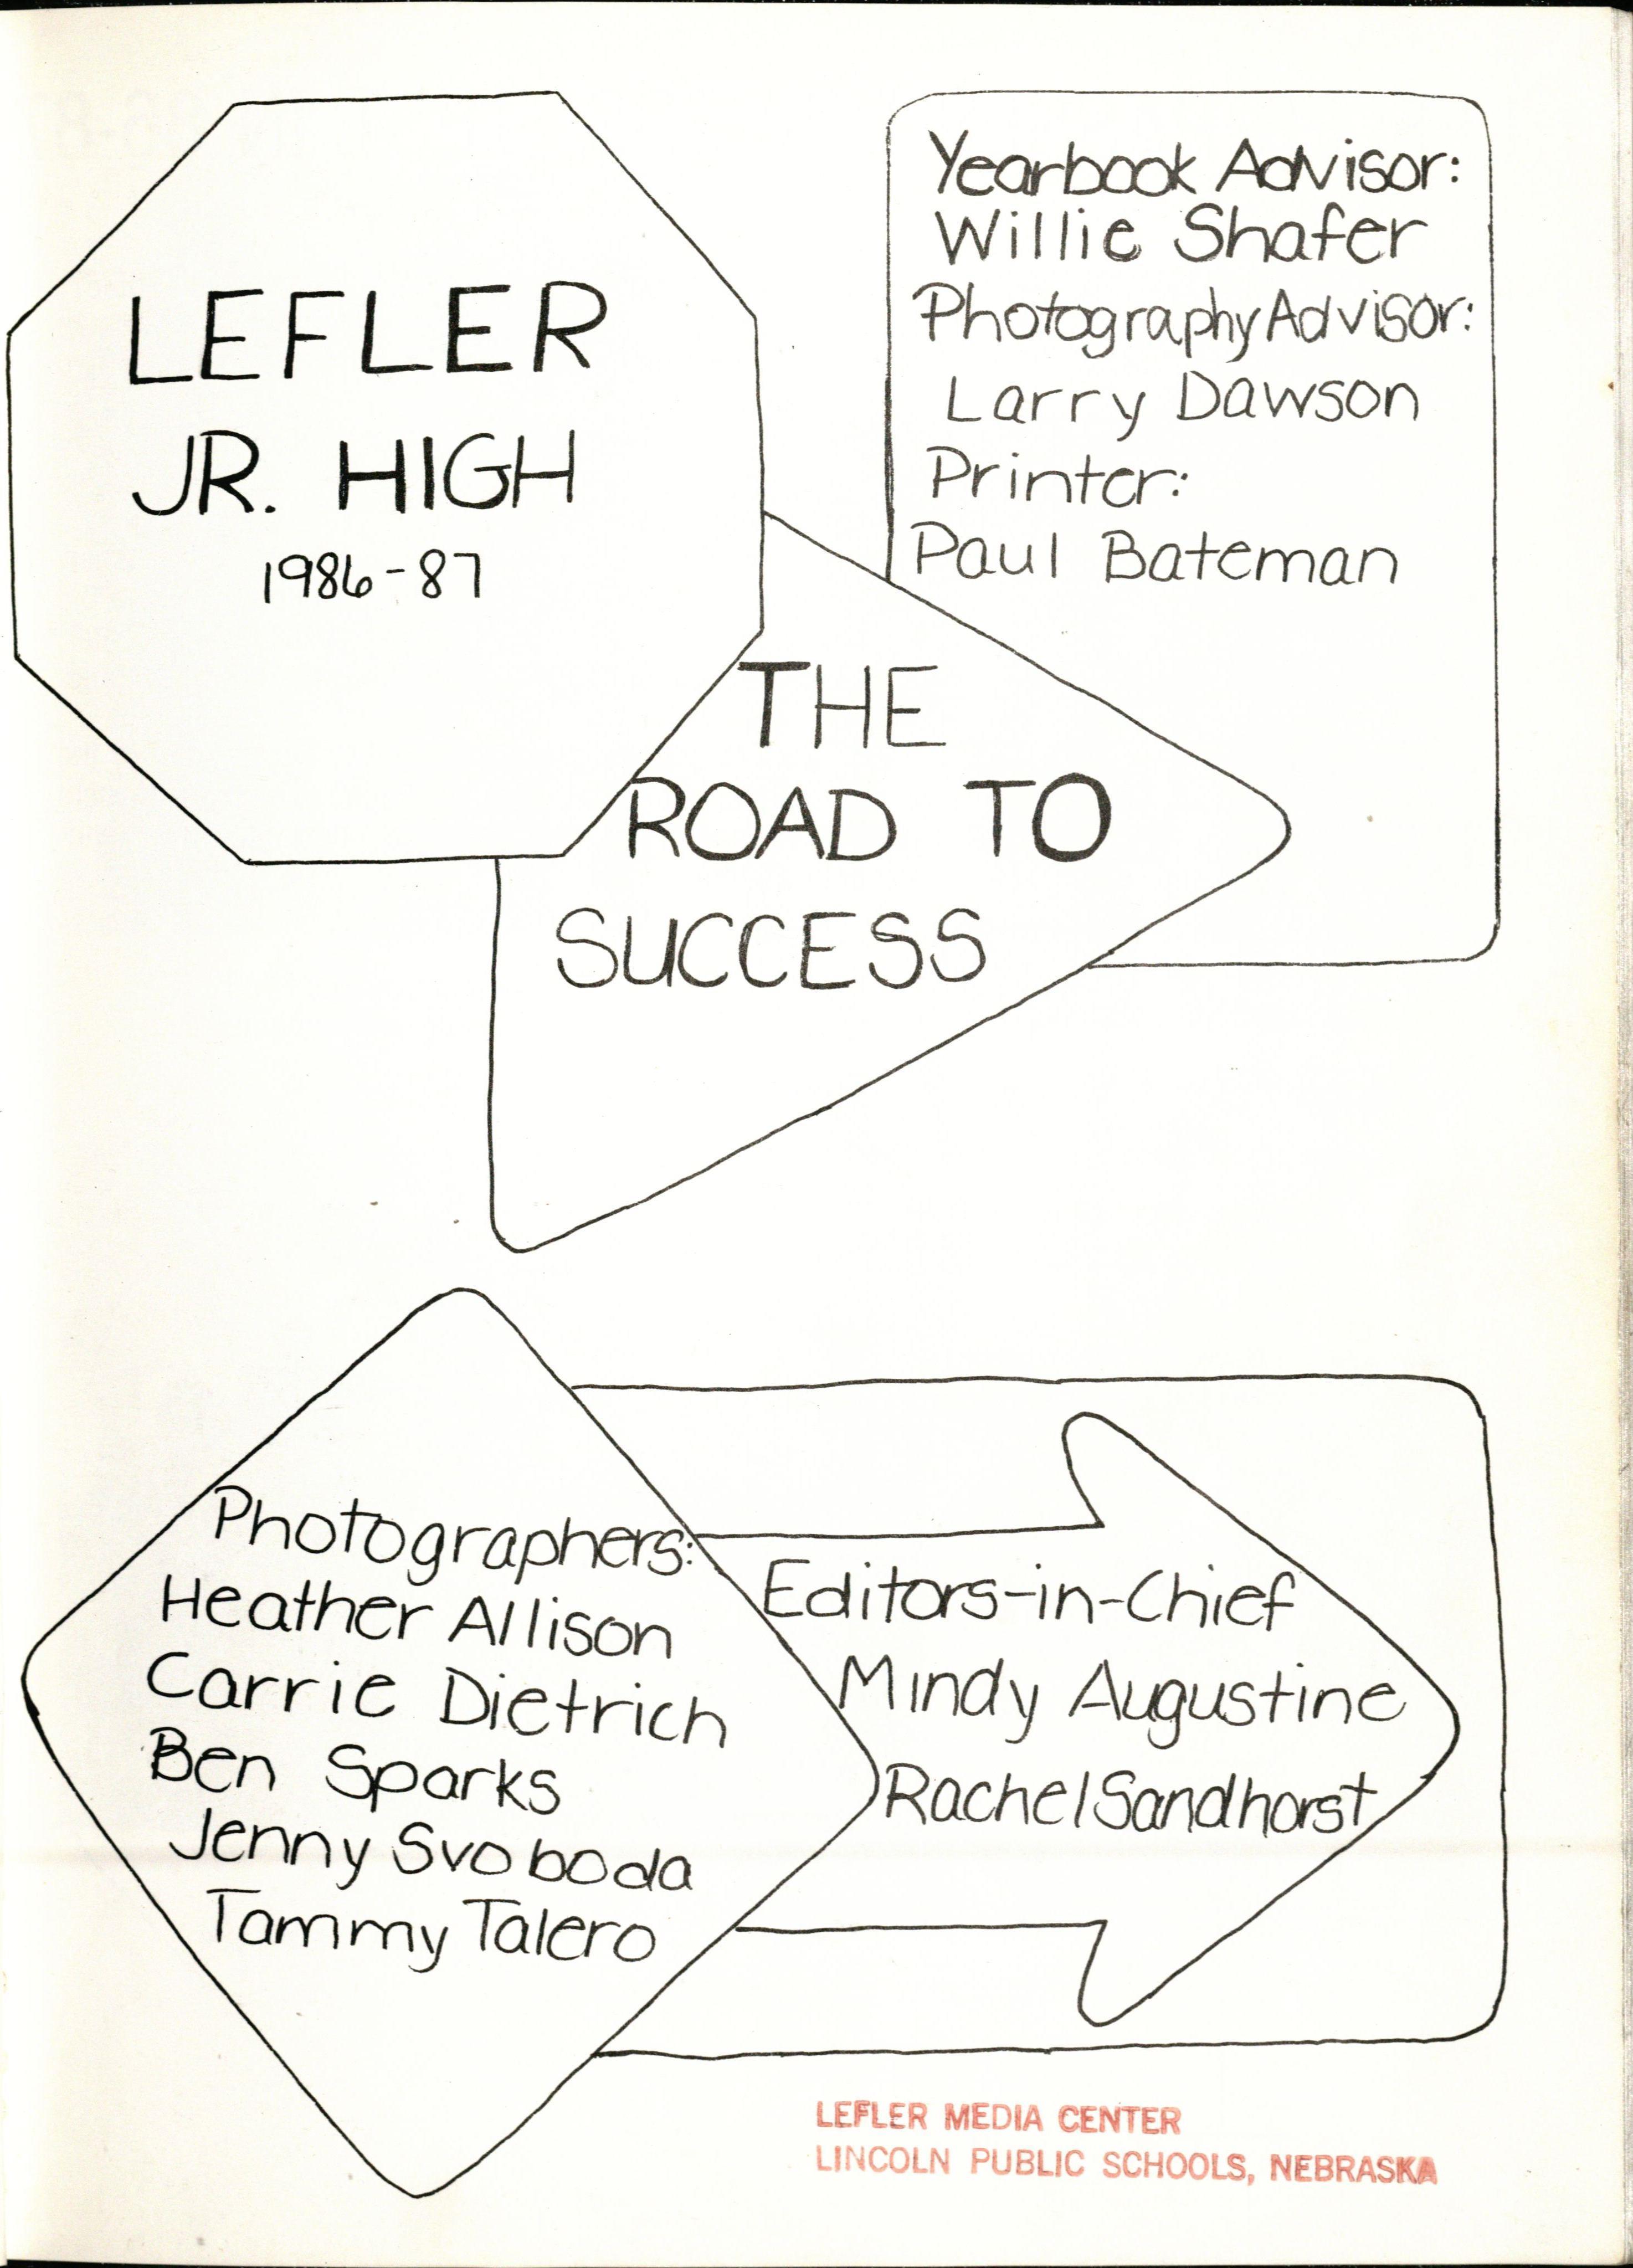 LEFLER
JR. HIGH
1986-87
Yearbook Advisor:
Willie Shafer
Photography Advisor:
Larry Dawson
Printer:
Paul Bateman
THE
ROAD TO
SUCCESS
Photographers:
Heather Allison
Carrie Dietrich
Ben Sparks
Jenny Svoboda
Tammy Talero
Editors-in-Chief
Mindy Augustine
Rachel Sandhorst
LEFLER MEDIA CENTER
LINCOLN PUBLIC SCHOOLS, NEBRASKA